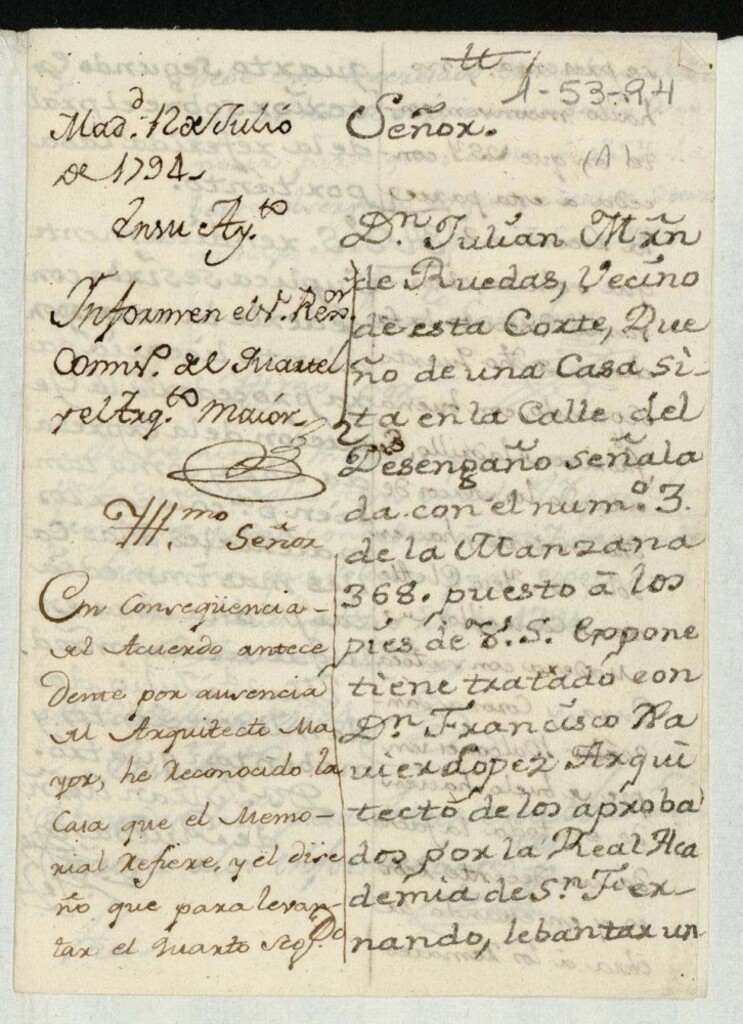 1-53-94
(A)
Mad.d 12 de Julio
de 1794.
En su Ay.to
Informen el S.r Rexr.
Comis.o del Quartel
y el Arq.to Maior.
Yll.mo Señor
En conseqüencia-
del Acuerdo antece
dente por ausencia
del Arquitecto Ma
yor, he Reconocido la
Casa que el Memo-
rial refiere, y el dise
ño que para levan-
tar el quarto Seg.do
Señor.
D.n Julian Mrñ
de Ruedas, Vecino
de esta Corte, Due
ño de una Casa si-
ta en la Calle del
Desengaño señala
da con el num.o 3.
de la Manzana
368. puesto à los
pies de V. S. Expone
tiene tratado con
D.n Francisco Xa
vier Lopez Arqui
tecto de los aproba
dos por la Real Aca
demia de S.n Fer-
nando, lebantar un